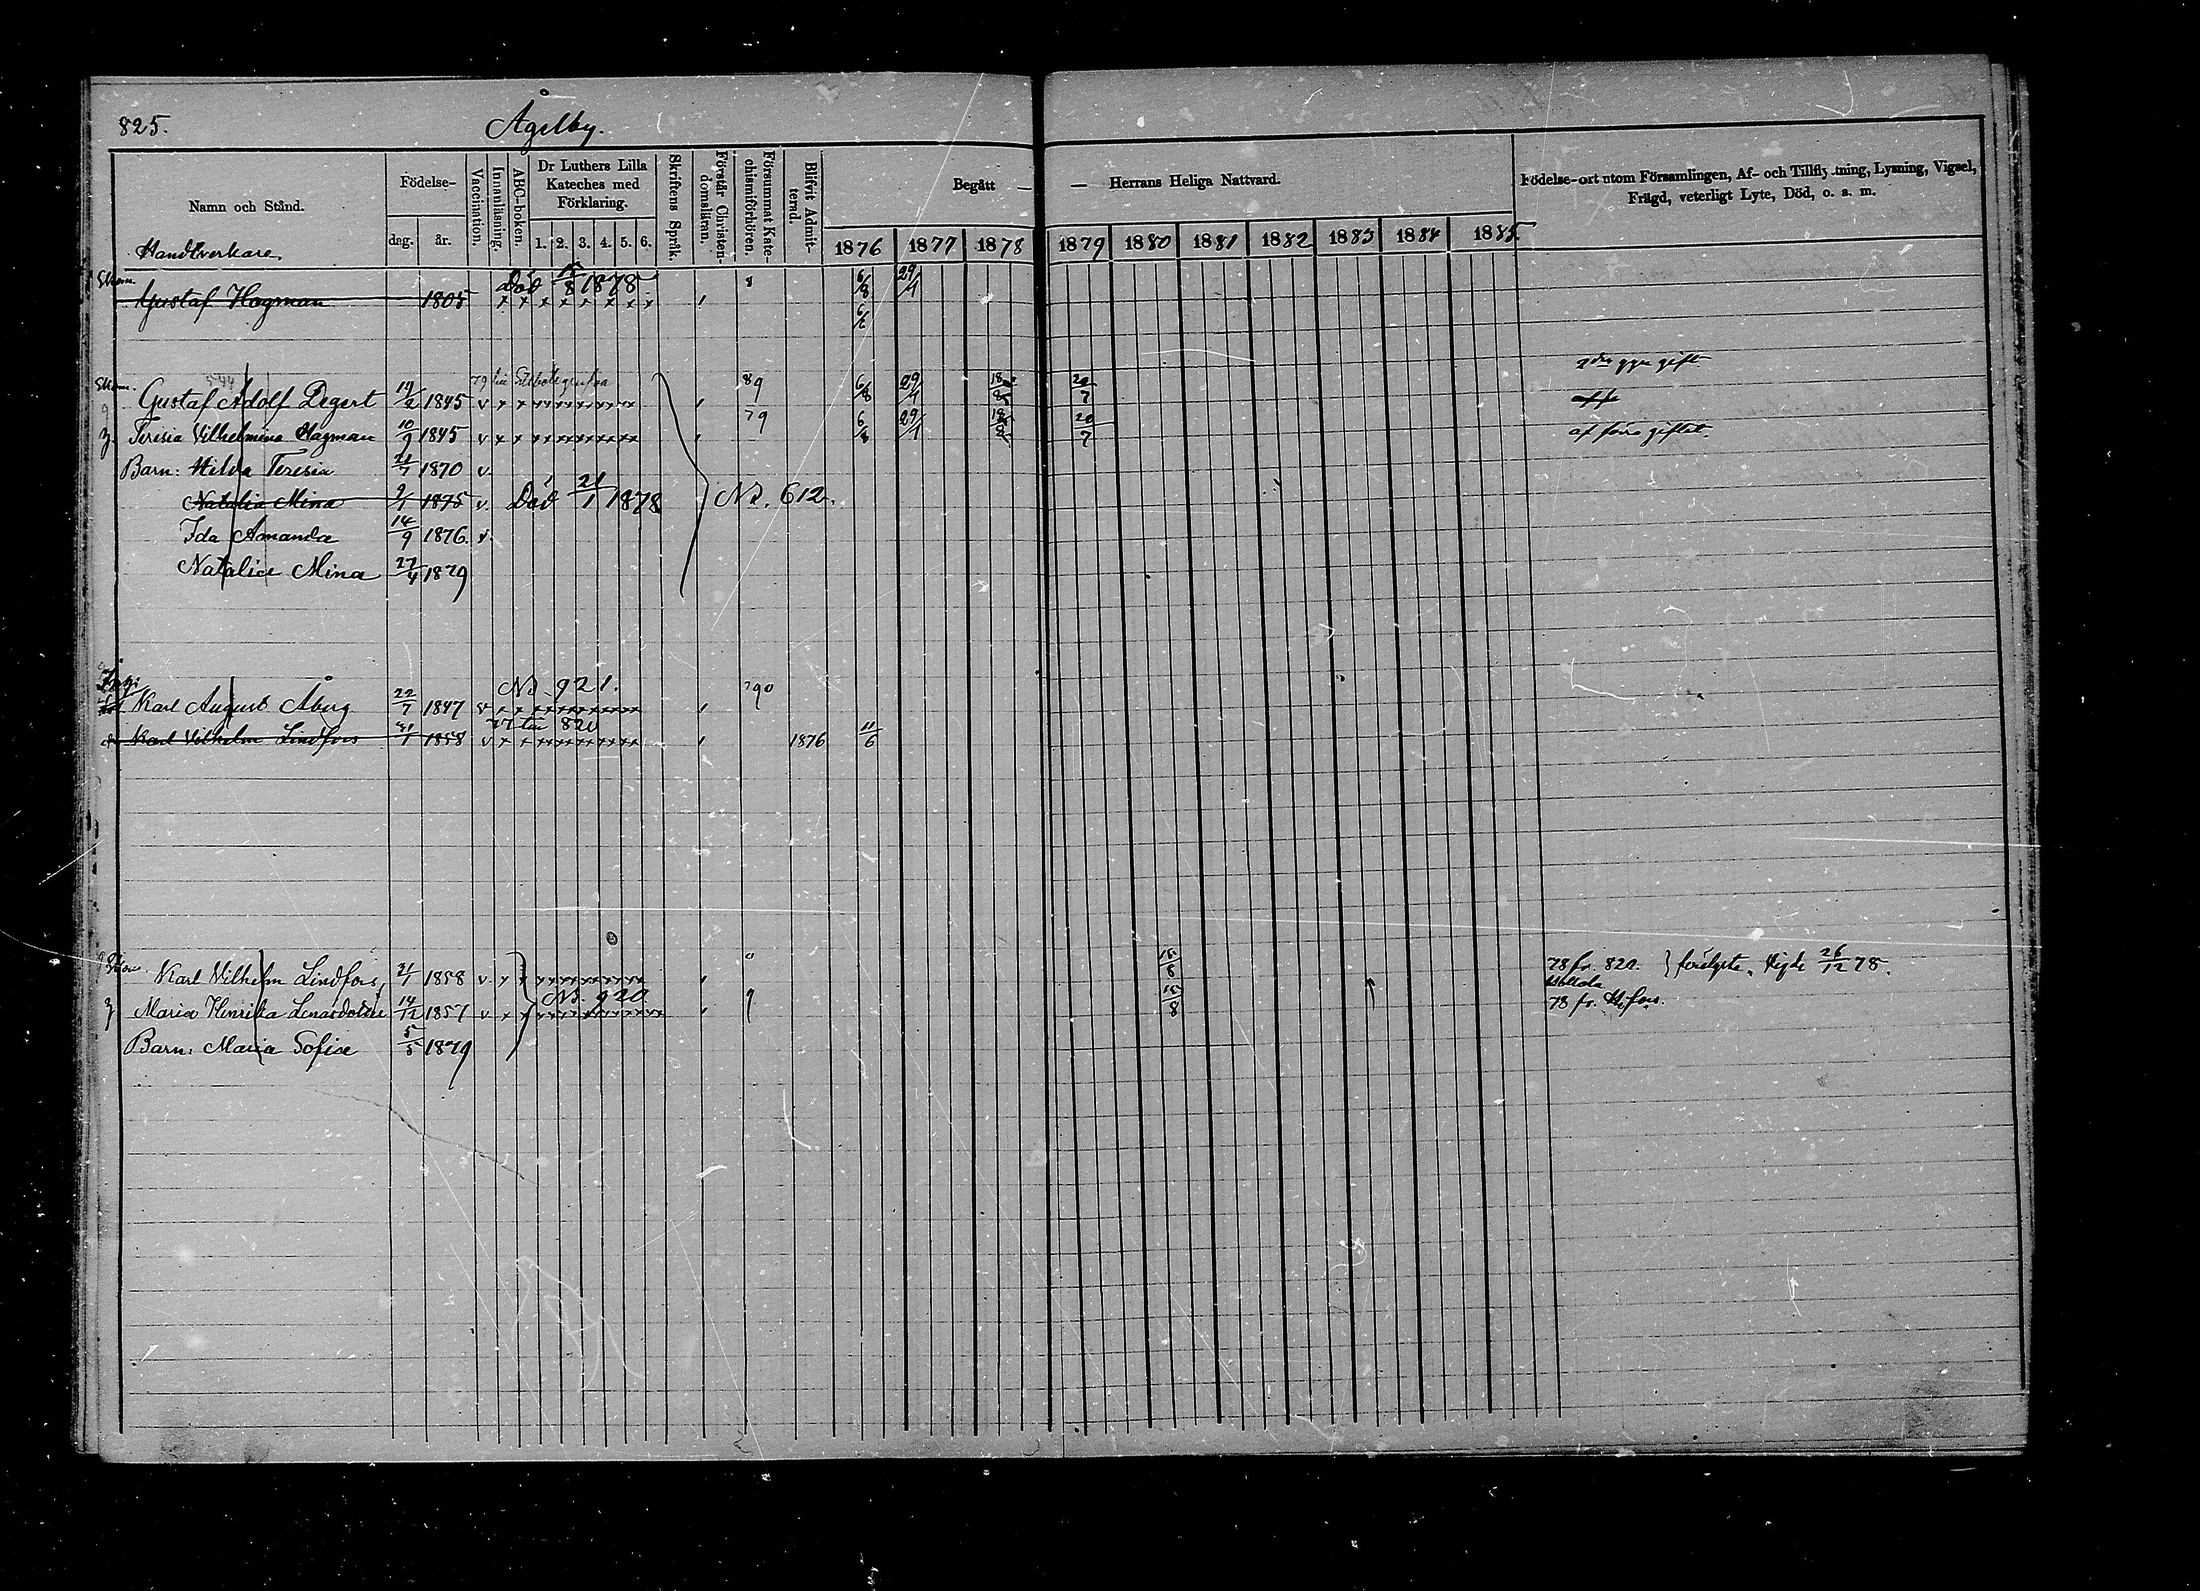 825.
Ågelby.
Namn och Stånd.
Födelse-
dag. år.
Vaccination.
Innanläsning.
ABC-boken.
Dr Luthers Lilla
Kateches med
Förklaring.
1. 2. 3. 4. 5. 6.
Skriftens Språk.
Förstår Christen-
domsläran.
Försummat Kate-
chismiförhören.
Blifvit Admit-
terad.
Begått — — Herrans Heliga Nattvard.
1876 1877 1878 1879 1880 1881 1882 1883 1884 1885
Födelse-ort utom Församlingen, Af- och Tillflyttning, Lysning, Vigsel,
Frägd, veterligt Lyte, Död, o. s. m.
Handtverkare.
Gustaf Hagman 1805 Död 1878 8 6/8 29/1
Gustaf Adolf Degert 19/2 1845 v 89 6/8 29/1 20/7 gift
Teresia Vilhelmina Hagman 10/9 1845 v 79 6/8 29/1 20/7 af förra giftet.
Barn: Hilda Teresia 21/7 1870 v.
Natalia Mina 9/1 1875 v. Död 21/1 1878 No. 612.
Ida Amanda 14/9 1876 v.
Natalia Mina 27/4 1879
No 921.
Karl August Åberg 22/7 1847 v 790
77 till 820
Karl Vilhelm Lindfors 31/1 1858 v 1876 11/6
Karl Vilhelm Lindfors, 31/1 1858 v 15/8 78 fr. 820. } Vigde 26/12 78.
No. 920
Maria Henrika 14/12 1857 v 9 15/8 78 fr. H:fors.
Barn: Maria Sofia 5/5 1879